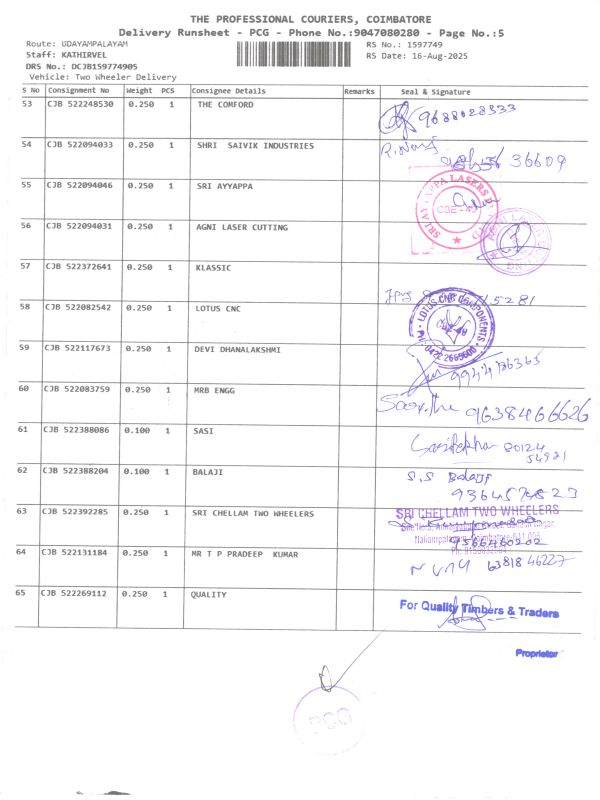 THE PROFESSIONAL COURIERS, COIMBATORE
Delivery Runsheet - PCG - Phone No.:9047080280 - Page No.:5
Route: UDAYAMPALAYAM RS No.: 1597749
Staff: KATHIRVEL RS Date: 16-Aug-2025
DRS No.: DCJB159774905
Vehicle: Two Wheeler Delivery
S No Consignment No Weight PCS Consignee Details Remarks Seal & Signature
53 CJB 522248530 0.250 1 THE COMFORD
54 CJB 522094033 0.250 1 SHRI SAIVIK INDUSTRIES
36609
55 CJB 522094046 0.250 1 SRI AYYAPPA
SRI AYYAPPA LASERS
56 CJB 522094031 0.250 1 AGNI LASER CUTTING
57 CJB 522372641 0.250 1 KLASSIC
15281
58 CJB 522082542 0.250 1 LOTUS CNC
LOTUS CNC COMPONENTS
59 CJB 522117673 0.250 1 DEVI DHANALAKSHMI
60 CJB 522083759 0.250 1 MRB ENGG
9638466626
61 CJB 522388086 0.100 1 SASI
80124
54981
62 CJB 522388204 0.100 1 BALAJI
S.S Balaji
63 CJB 522392285 0.250 1 SRI CHELLAM TWO WHEELERS
SRI CHELLAM TWO WHEELERS
9566460202
64 CJB 522131184 0.250 1 MR T P PRADEEP KUMAR
63818 46227
65 CJB 522269112 0.250 1 QUALITY
For Quality Timbers & Traders
Proprietor